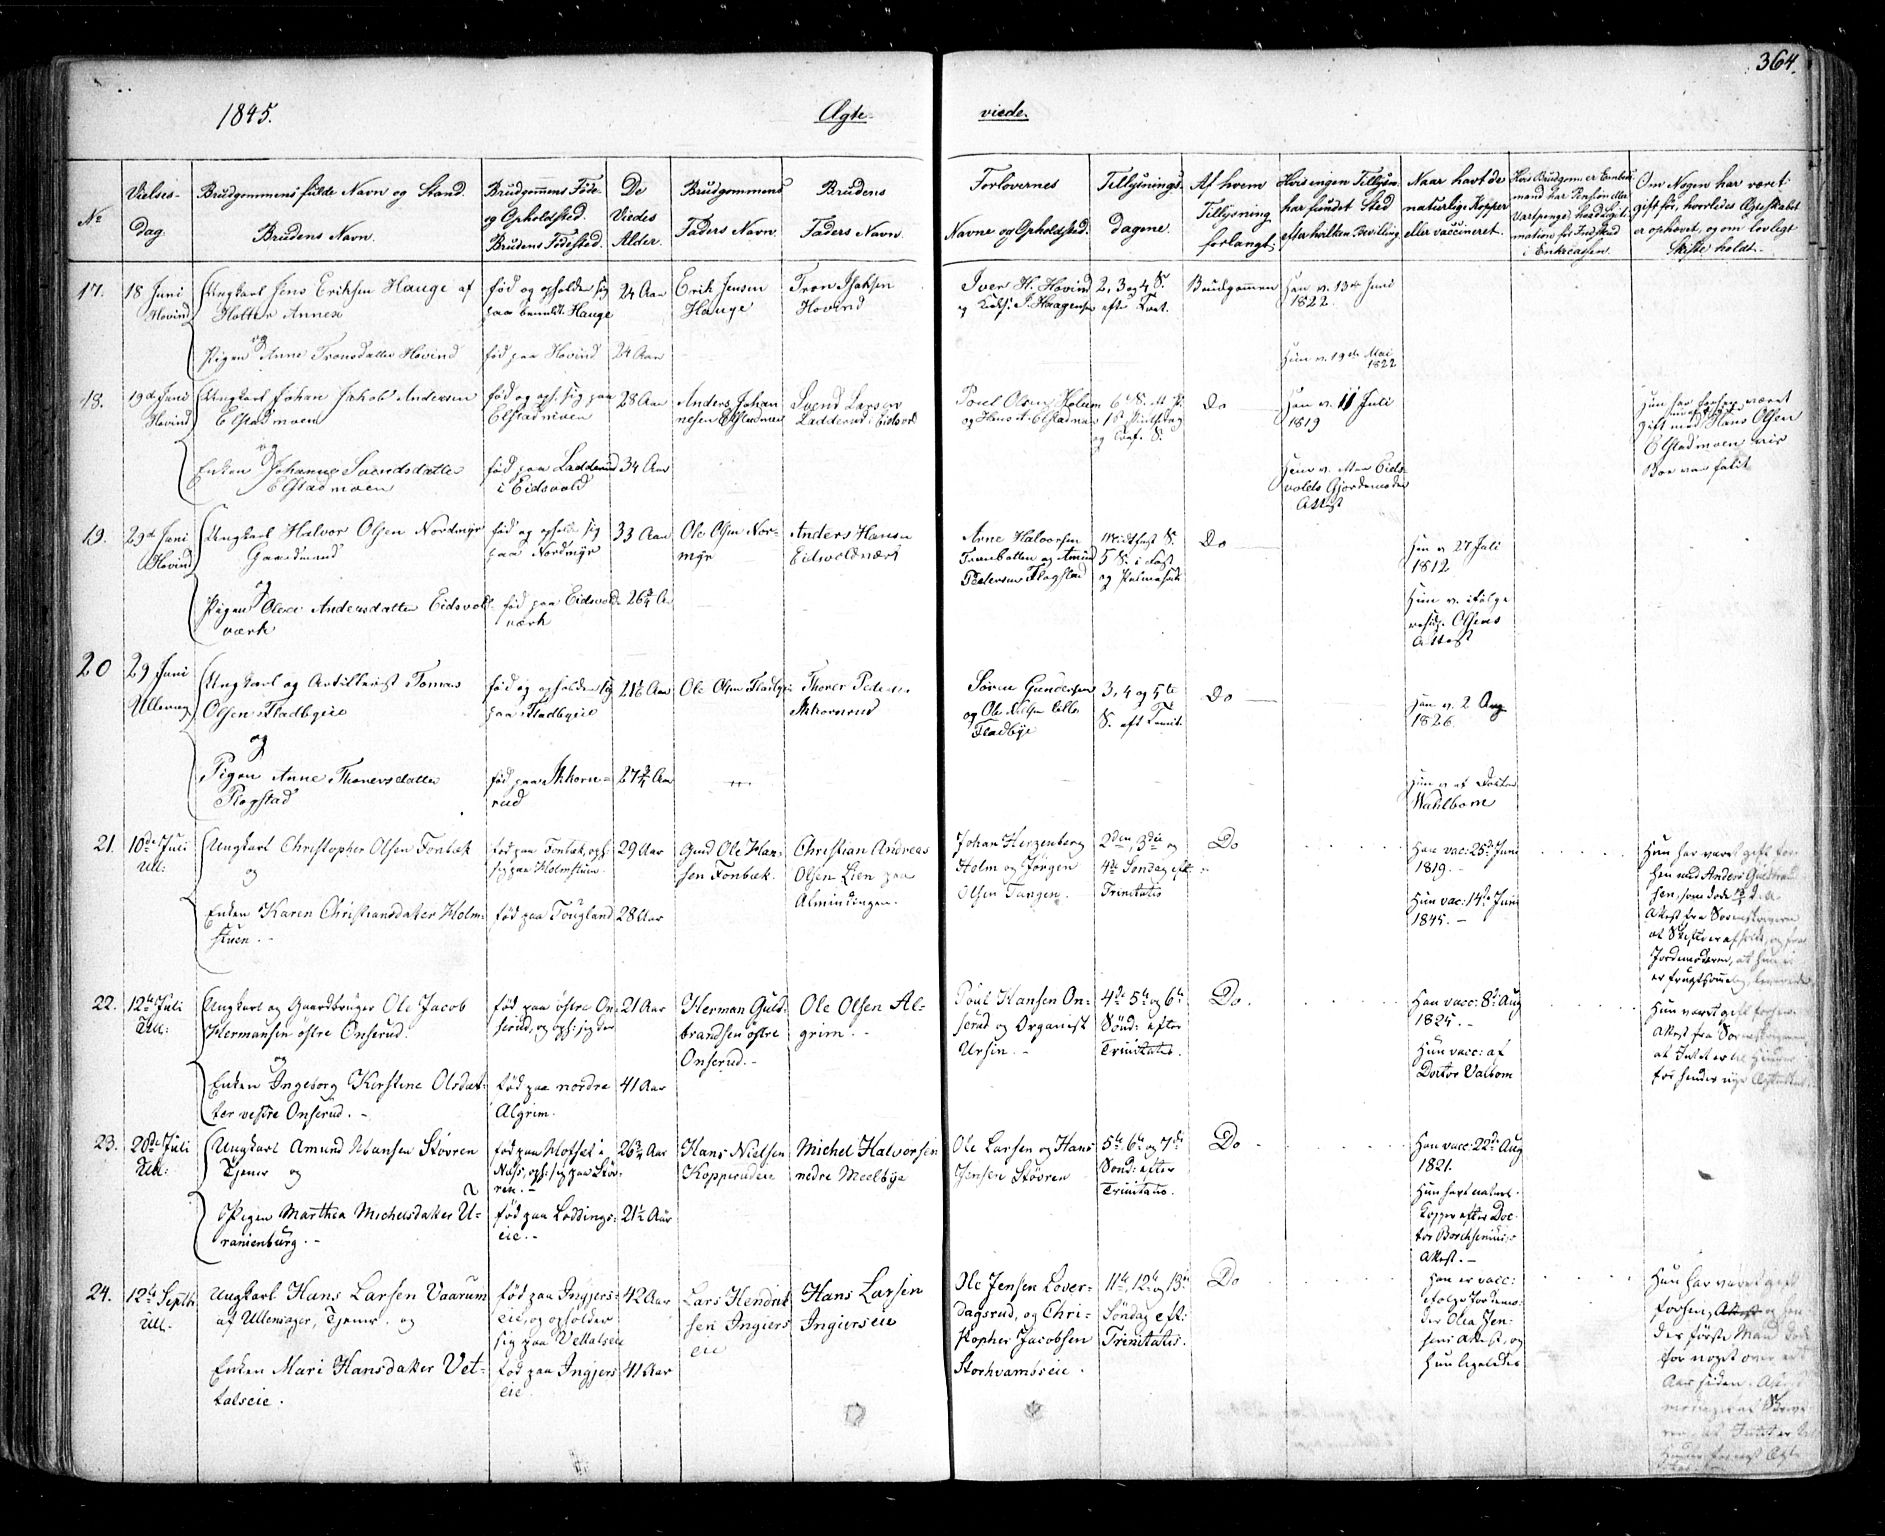 364.
1845.
Ægte
viede.
No
Vielses-
dag.
Brudgommens fulde Navn og Stand.
Brudens Navn.
Brudgommens Føde-
og Opholdsted.
Brudens Fødested.
De
Viedes
Alder.
Brudgommens
Faders Navn.
Brudens
Faders Navn.
Forlovernes
Navne og Opholdsted.
Tillysnings-
dagene.
Af hvem
Tillysning
forlangt.
Hvis ingen Tillysn.
har fundet Sted
efter hvilken Bevilling
Naar havt de
naturlige Kopper
eller vaccineret.
Om Nogen har været
gift før, hvorledes Ægteskabet
er ophævet, og om lovligt
Skifte holdt.
17.
18 Juni
Hovind
Ungkarl Jens Eriksen Hauge af
Holter Annex
og
Pigen Anne Tronsdatter Hovind
fød og opholder sig
paa bemeldt Hauge
fød paa Hovind
24 Aar
24 Aar
Erik Jensen
Hauge
Tron Isaksen
Hovind
Iver H. Hovind
2, 3 og 4 S.
Brudgommen
Han v. 13de Juni
1822.
Hun v. 19de Mai
1822
18.
19de Juni
Hovind
Ungkarl Johan Jakob Andersen
Elstadmoen
og
Enken Johanne Svendsdatter
Elstadmoen
fød og oph. sig paa
Elstadmoen
fød paa Ladderud
i Eidsvold
28 Aar
34 Aar
Anders Johan
nesen Elstadmoen
Svend Larsen
Ladderud i Eidsvold
Poul Olsen Holum
og Hans A. Elstadmoen
Do
Han v. 11 Juli
1819
Gjordemoder
Attest
Hun har forhen været
gift med Hans Olsen
Elstadmoen
Boe var falit
19.
29de Juni
Hovind
Ungkarl Halvor Olsen Nordmyr
Gaardmand
og
Pigen Olea Andersdatter Eidsvold
værk
fød og opholder sig
paa Nordmyr
fød paa Eidsvold
værk
33 Aar
26¾ Aar
Ole Olsen Nor-
myr
Anders Hansen
Eidsvoldværk
Arne Halvorsen
Tranbotten og Amund
Pedersen Flogstad
Midfast S.
5 S. i Fast
Do
Han v. 27 Juli
1812
Hun v. ifølge
Olsens
Attest
20
29 Juni
Ungkarl og Artillerist Tomas
Olsen Fladbyeie
og
Pigen Anne Thorersdatter
Flogstad
fød og opholder sig
paa Fladbyeie
27¾ Aar
Ole Olsen Fladbyeie
Thorer Peders
Søren Gundersen
og Ole Nilsen lille
Fladbye
3, 4 og 5te
S. eft Trinit.
Do
Han v. 2 Aug
1826
Hun v af Doctor
Wahlbom
21.
10de Juli
Ull:
Ungkarl Christopher Olsen Fonbæk
og
Enken Karen Christiansdatter Holm-
stuen. -
fød paa Fonbæk, oph.
sig paa Holmstuen.
fød paa Tougland
29 Aar
28 Aar
Gmd Ole Han-
sen Fonbæk.
Christian Andreas
Olsen Lien paa
Almindingen.
Johan Herzenberg
Holm og Jørgen
Olsen Tangen.
2den, 3die og
4de Søndag eft.
Trinitatis
Do
Han vac: 25de Juni
1819. -
Hun vac: 14de Juni
1845. -
Hun har været gift for-
hen med Anders Guldbrand-
sen, som døde
Attest fra Sorenskriveren
at Skifte er afholdt, og fra
Jordemoderen, at hun ei
er frugtsommelig, leverede
22.
12te Juli
Ull:
Ungkarl og Gaardbruger Ole Jacob
Hermansen østre Onserud.
og
Enken Ingeborg Kirstine Olsdat-
ter vestre Onserud. -
fød paa østre On-
serud, og oph: sig der
fød paa nordre
Algrim.
21 Aar
41 Aar
Herman Guld-
brandsen østre
Onserud. -
Ole Olsen Al-
grim. -
Poul Hansen On-
serud og Organist
Ursin. -
4de 5te og 6te
Sønd: efter
Trinitatis.
Do.
Han vacc: 8de Aug
1825. -
Hun vacc: af
Doctor Valbom
Hun været gift forhen.
Attest fra Sorenskriveren
at Intet er til Hinder
for hendes nye Ægteskab.
23.
20de Juli
Ull:
Ungkarl Amund Hansen Støvren
Tjener og
Pigen Marthea Michelsdatter U-
ranienburg. -
fød paa Mofset i
Næs, oph: sig paa Støv-
ren. -
fød paa Løddings-
eie. -
26¾ Aar
21½ Aar
Hans Nielsen
Kopperudeie
Michel Halvorsen
nedre Meelbye
Ole Larsen og Hans
Jensen Støvren
5te 6te og 7de
Sønd: efter
Trinitatis.
Do
Han vacc: 22de Aug
1821.
Hun havt naturl.
Kopper efter Doc-
tor Borchsenius's
Attest. -
24.
12te Septbr
Ull.
Ungkarl Hans Larsen Vaarum
af Ullensager, Tjener. og
Enken Mari Hansdatter Vet-
talseie.
fød paa Ingjers-
eie, og opholder
sig paa Vettalseie
fød paa Ingjers
eie.
42 Aar
41 Aar
Lars Hendrik
sen Ingiers
eie
Hans Larsen
Ingierseie
Ole Jensen Løver-
dagsrud, og Chri-
stopher Jacobsen
Storhvamsseie.
11te, 12te og 13de
Søndag eft:
Trinitatis.
Do
Han er vacc:
efølge Jordemo-
der Olea Jen-
sens Attest, og
Hun ligeledes
Hun har været gift
forhen, og hen-
des første Mand døde
for noget over et
Aar siden.